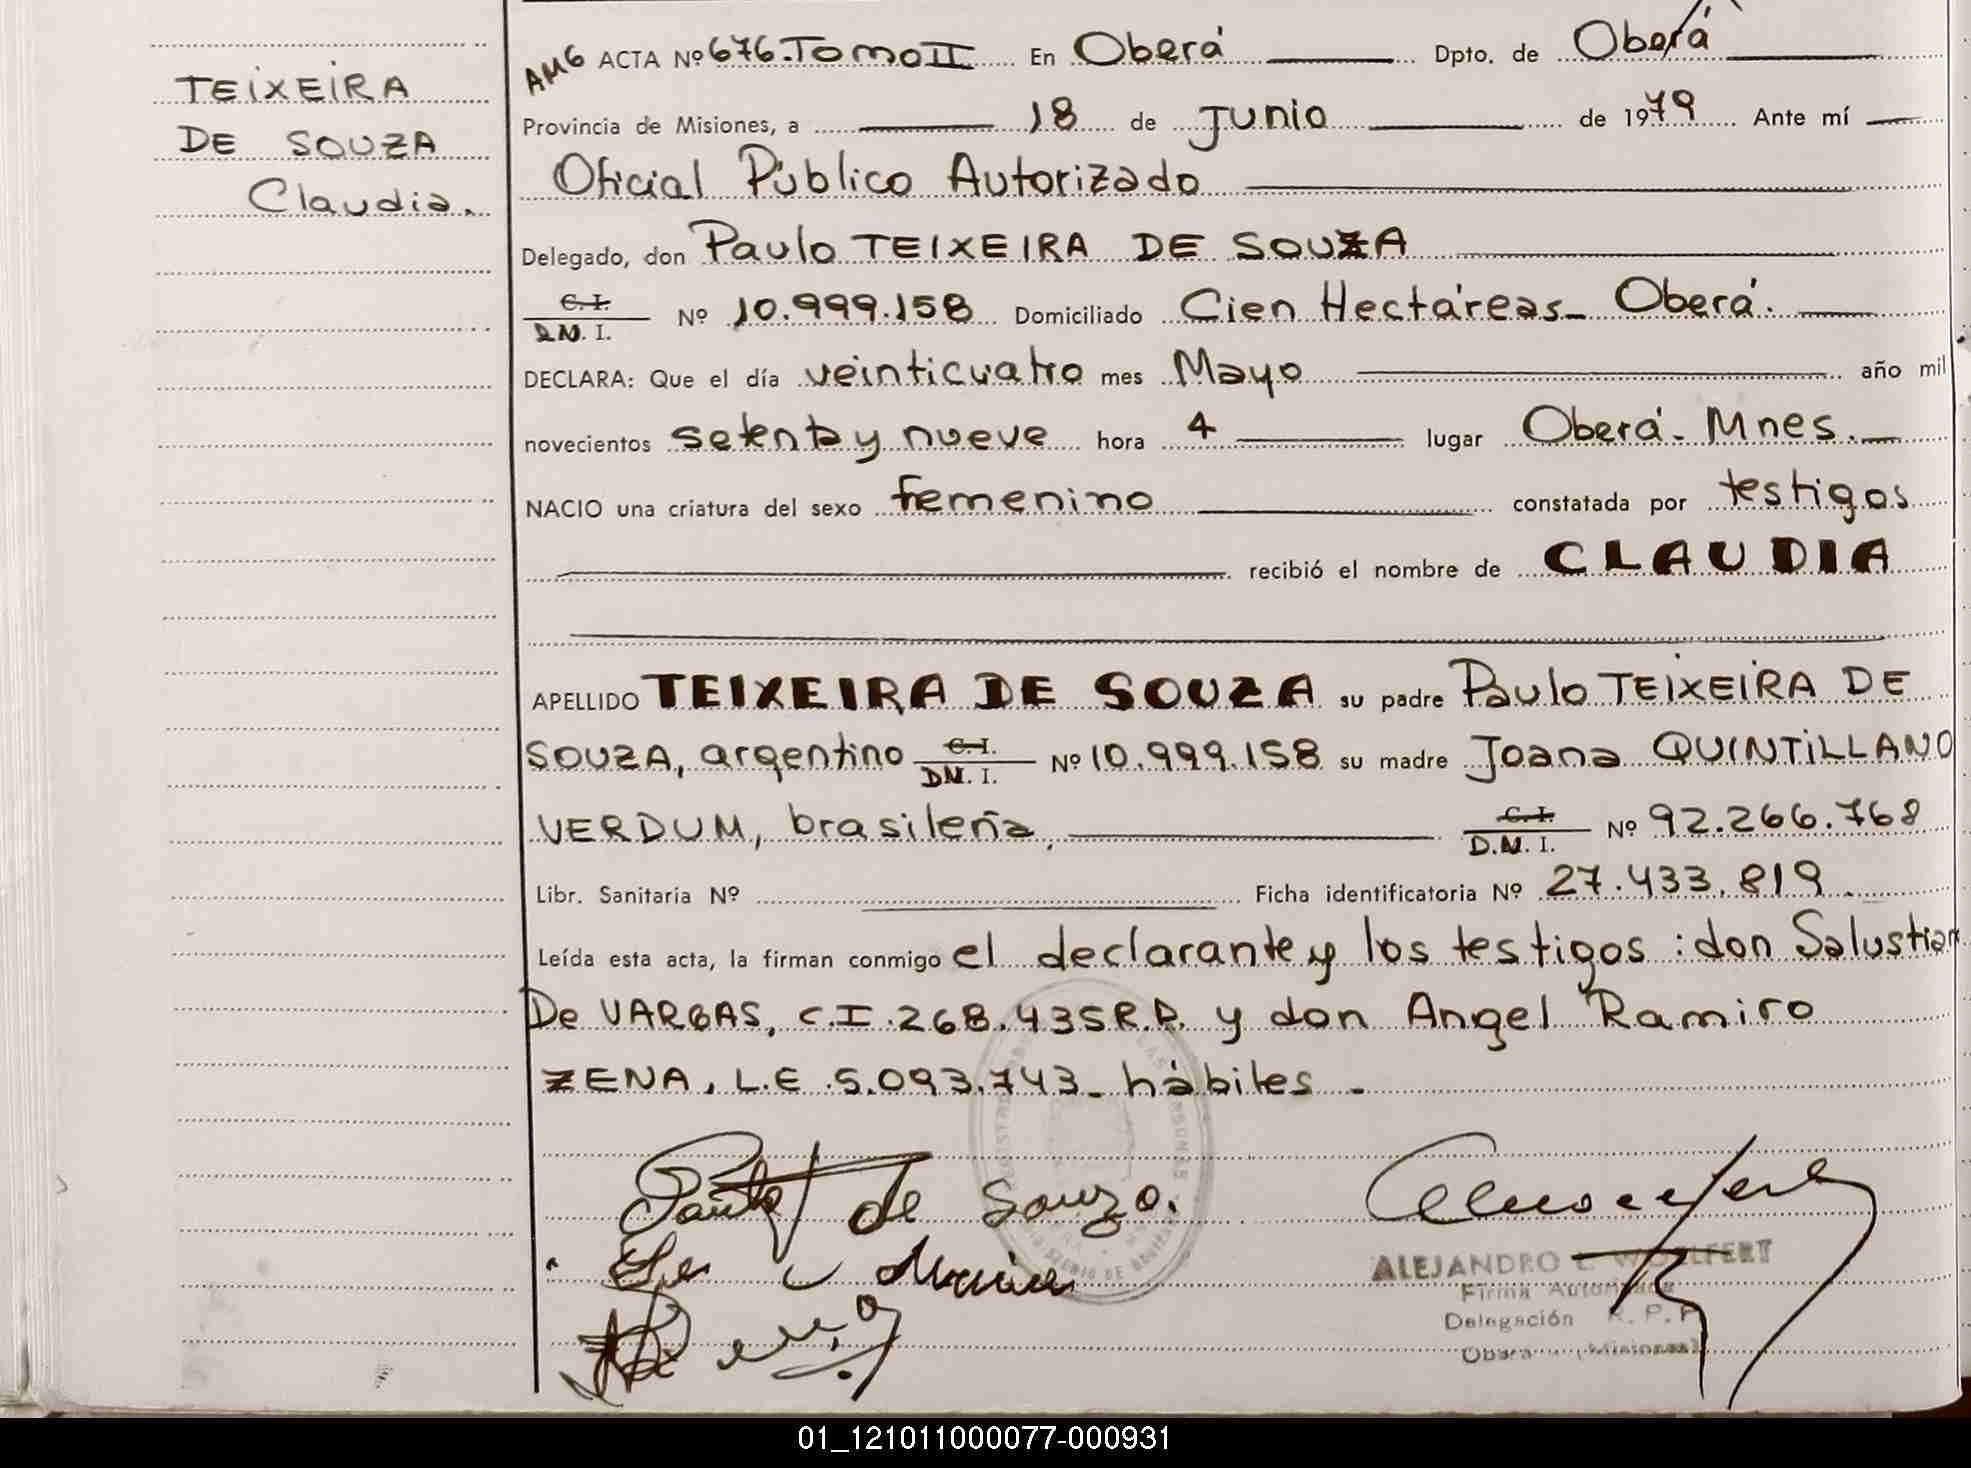 TEIXEIRA
DE SOUZA
Claudia.
AMG ACTA Nº 676.Tomo II En Oberá Dpto. de Oberá
Provincia de Misiones, a 18 de Junio de 1979 Ante mí
Oficial Público Autorizado
Delegado, don Paulo TEIXEIRA DE SOUZA
C.I.
D.N.I. Nº 10.999.158 Domiciliado Cien Hectáreas- Oberá.
DECLARA: Que el día veinticuatro mes Mayo año mil
novecientos setenta y nueve hora 4 lugar Oberá- Mnes.
NACIO una criatura del sexo femenino constatada por testigos
recibió el nombre de CLAUDIA
APELLIDO TEIXEIRA DE SOUZA su padre Paulo TEIXEIRA DE
SOUZA, argentino C.I. D.N.I. Nº 10.999.158 su madre Joana QUINTILLANO
VERDUM, brasileña C.I. D.N.I. Nº 92.266.768
Libr. Sanitaria Nº Ficha identificatoria Nº 27.433.819
Leída esta acta, la firman conmigo el declarante y los testigos: don Salustian
De VARGAS, C.I. 268.435R.P. y don Angel Ramiro
ZENA, L.E. 5.093.743- hábiles-
de Souza.
ALEJANDRO E. WOELFERT
Firma Autorizada
Delegación R. P. P
Obera (Misiones)
01_121011000077-000931